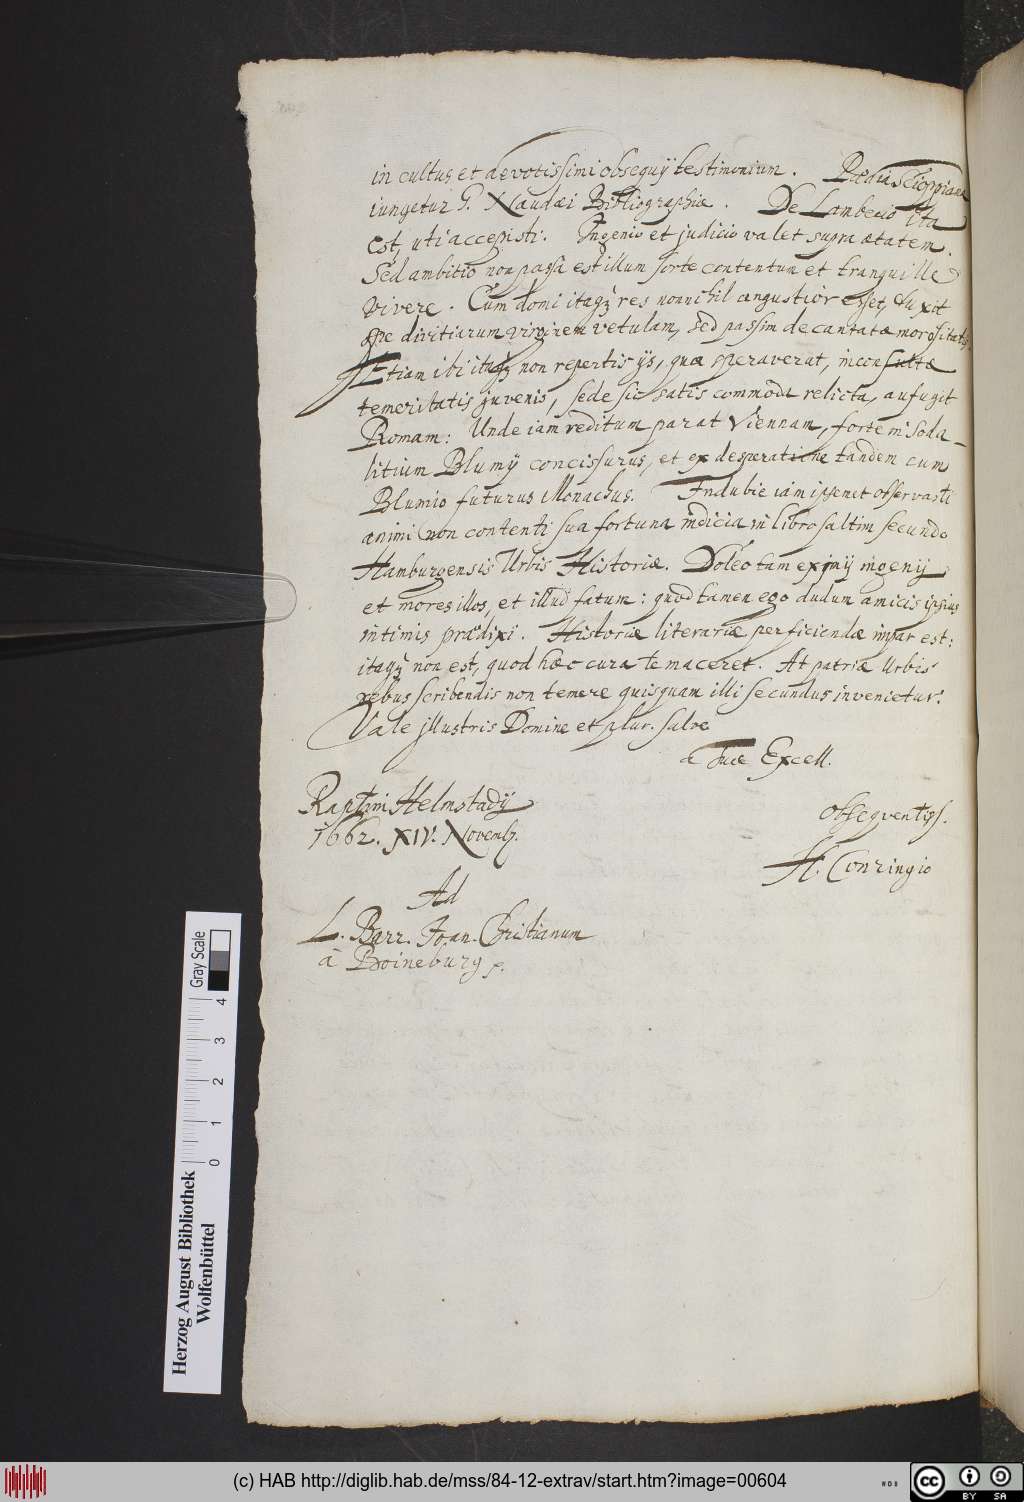 in cultus et devotissimi obsequij testimonium. Pædia Scioppiana
iungetur G. Naudæi Bibliographiæ. De Lambecio ita
est, uti accepisti. Ingenio et judicio valet supra ætatem.
Sed ambitio non passa est illum sorte contentum et tranquille
vivere. Cum domi itaqꝫ res nonnihil angustior esset, duxit
spe divitiarum virginem vetulam, sed passim decantatæ morositatis.
Etiam ibi itaqꝫ non repertis ijs, quæ speraverat, inconsultæ
temeritatis juvenis, sede sic satis commoda relicta, aufugit
Romam: Unde iam reditum parat Viennam, forte in Soda-
litium Blumij concessurus, et ex desperatione tandem cum
Blumio futurus Monachus. Indubie iam ipsemet observasti
animi non contenti sua fortuna indicia in libro saltim secundo
Hamburgensis Urbis Historiæ. Doleo tam eximij ingenij
et mores illos, et illud fatum: quod tamen ego dudum amicis ipsius
intimis prædixi. Historiæ literariæ perficiendæ impar est:
itaqꝫ non est, quod hæc cura te maceret. At patriæ Urbis
rebus scribendis non temere quisquam illi secundus invenietur.
Vale jllustris Domine et plur. salve
a Tuæ Excell.
Raptim Helmstadij
1662. XIV. Novemb.
obsequentiss.
H. Conringio
Ad
L. Barr. Joan. Christianum
à Boineburg
Herzog August Bibliothek
Wolfenbüttel
Gray Scale
0 1 2 3 4
(c) HAB http://diglib.hab.de/mss/84-12-extrav/start.htm?image=00604
cc BY SA